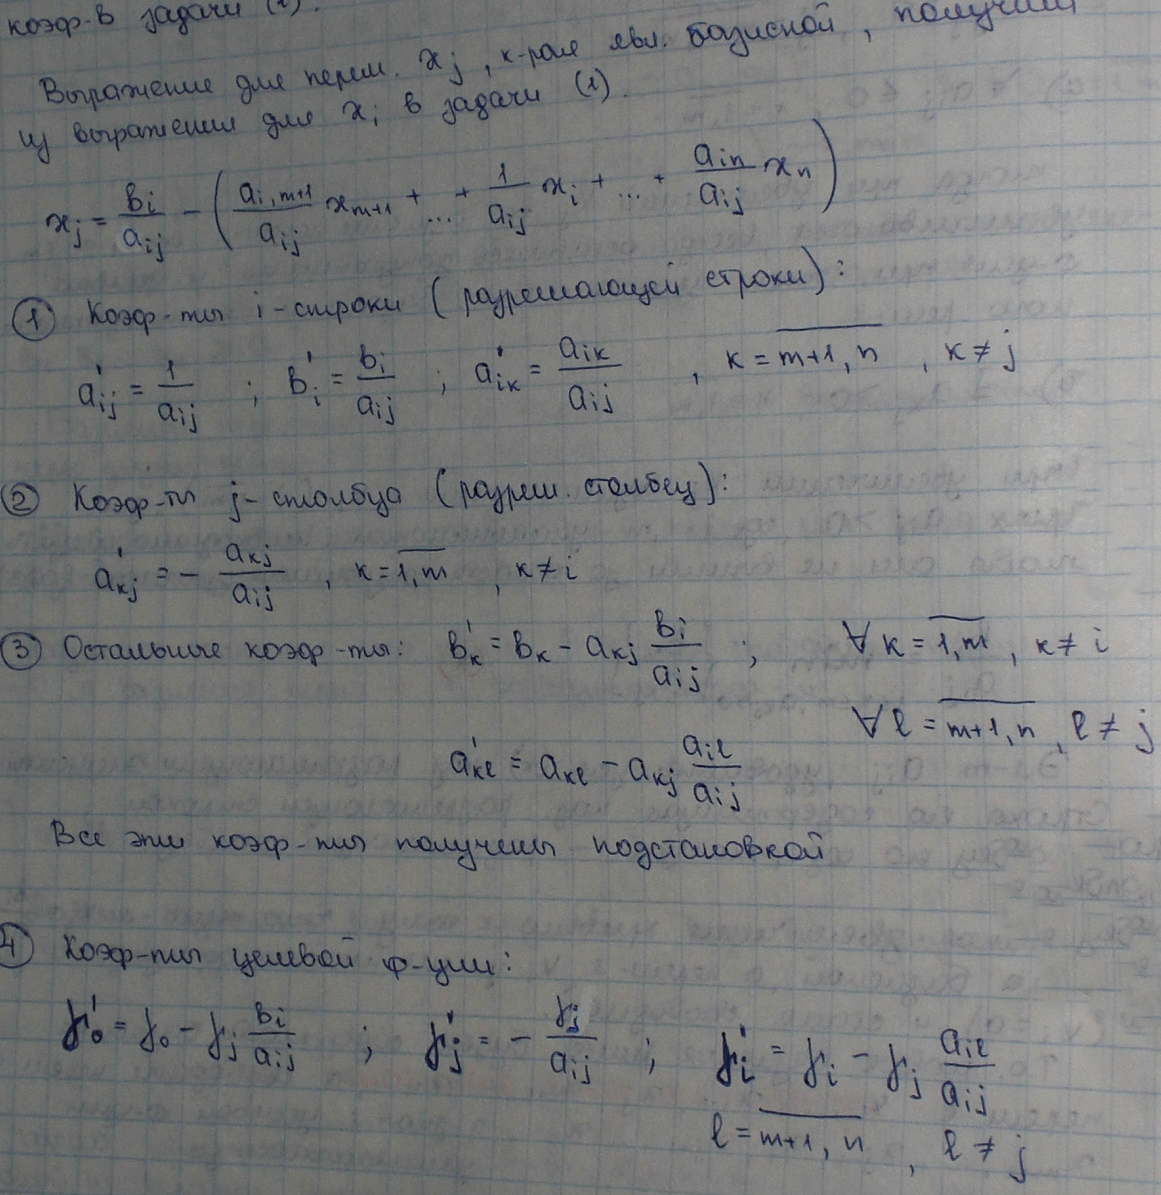 коэф-в задачи (2).
Выражение для перем. xⱼ, к-рая явл. базисной, получим
из выражения для xᵢ в задачи (1).
xⱼ = bᵢ/aᵢⱼ − (aᵢ,ₘ₊₁/aᵢⱼ xₘ₊₁ + ... + 1/aᵢⱼ xᵢ + ... + aᵢₙ/aᵢⱼ xₙ)
① Коэф-ты i-строки (разрешающей строки):
a'ᵢⱼ = 1/aᵢⱼ ; b'ᵢ = bᵢ/aᵢⱼ ; a'ᵢₖ = aᵢₖ/aᵢⱼ , k = m+1, n , k ≠ j
② Коэф-ты j-столбца (разреш. столбец):
a'ₖⱼ = − aₖⱼ/aᵢⱼ , k = 1, m , k ≠ i
③ Остальные коэф-ты: b'ₖ = bₖ − aₖⱼ bᵢ/aᵢⱼ ; ∀ k = 1, m , k ≠ i
∀ l = m+1, n , l ≠ j
a'ₖₗ = aₖₗ − aₖⱼ aᵢₗ/aᵢⱼ
Все эти коэф-ты получены подстановкой
④ Коэф-ты целевой ф-ции:
γ'₀ = γ₀ − γⱼ bᵢ/aᵢⱼ ; γ'ⱼ = − γⱼ/aᵢⱼ ; γ'ᵢ = γᵢ − γⱼ aᵢₗ/aᵢⱼ
l = m+1, n , l ≠ j